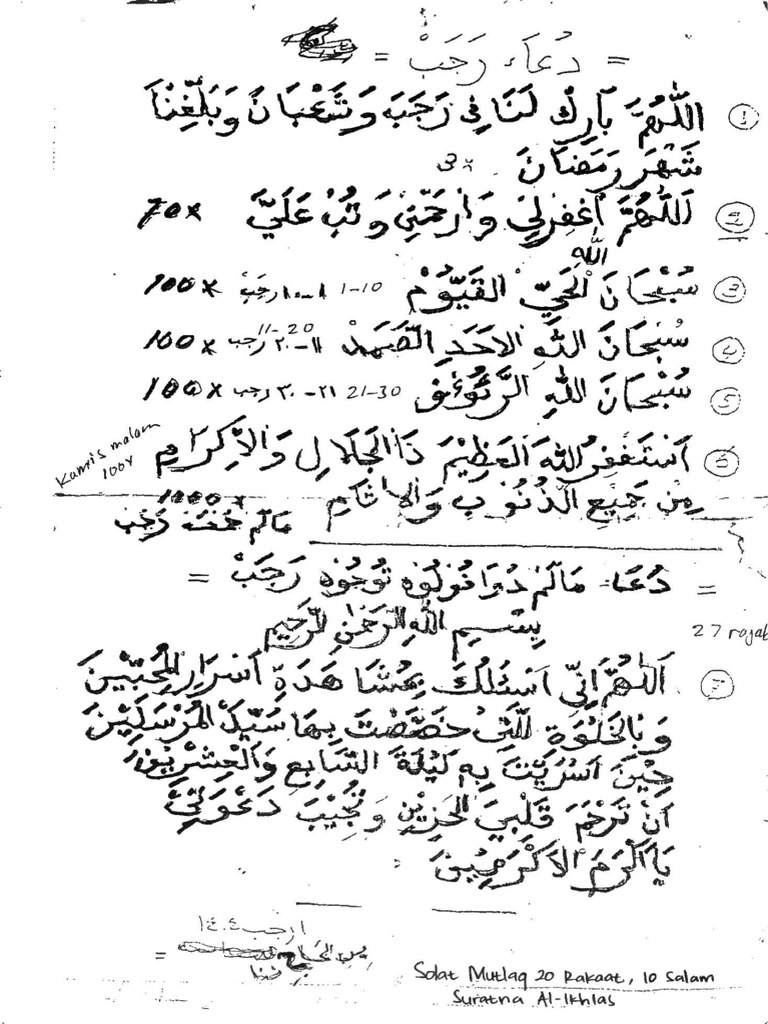 = دُعَاء رَجَبْ =
① اَللّٰهُمَّ بَارِكْ لَنَا فِى رَجَبَ وَشَعْبَانَ وَبَلِّغْنَا
شَهْرَ رَمَضَانَ 3x
② اَللّٰهُمَّ اغْفِرْلِيْ وَارْحَمْنِيْ وَتُبْ عَلَيَّ 70x
③ سُبْحَانَ اللّٰه الْحَيِّ الْقَيُّوْمْ 1-10 ١-١٠ رجب 100x
④ سُبْحَانَ اللّٰهِ الاَحَدِ الصَّمَدْ 11-20 ١١-٢٠ رجب 100x
⑤ سُبْحَانَ اللّٰهِ الرَّئُوْفْ 21-30 ٢١-٣٠ رجب 100x
⑥ اَسْتَغْفِرُ اللهَ الْعَظِيْمَ ذَا الْجَلَالِ وَالْاِكْرَامِ
Kamis malam
100x
مِنْ جَمِيْعِ الذُّنُوْبِ وَالْاٰثَامِ 1000x
مالم جمعة رجب
= دُعَاء مَالَمْ دُوَا فُولُوْه تُوجُوْه رَجَبْ =
بِسْمِ اللّٰهِ الرَّحْمٰنِ الرَّحِيْمِ
27 rojab
٧ اَللّٰهُمَّ اِنِّى اَسْئَلُكَ بِمُشَاهَدَةِ اَسْرَارِ الْمُحِبِّيْنَ
وَبِالْخَلْوَةِ الَّتِيْ خَصَّصْتَ بِهَا سَيِّدَ الْمُرْسَلِيْنَ
حِيْنَ اَسْرَيْتَ بِهِ لَيْلَةَ السَّابِعِ وَالْعِشْرِيْنَ
اَنْ تَرْحَمَ قَلْبِيَ الْحَزِيْنَ وَتُجِيْبَ دَعْوَتِيْ
يَا اَكْرَمَ الْاَكْرَمِيْنَ
١ رجب ١٤٠٤
Solat Mutlaq 20 Rakaat, 10 Salam
Suratna Al-Ikhlas